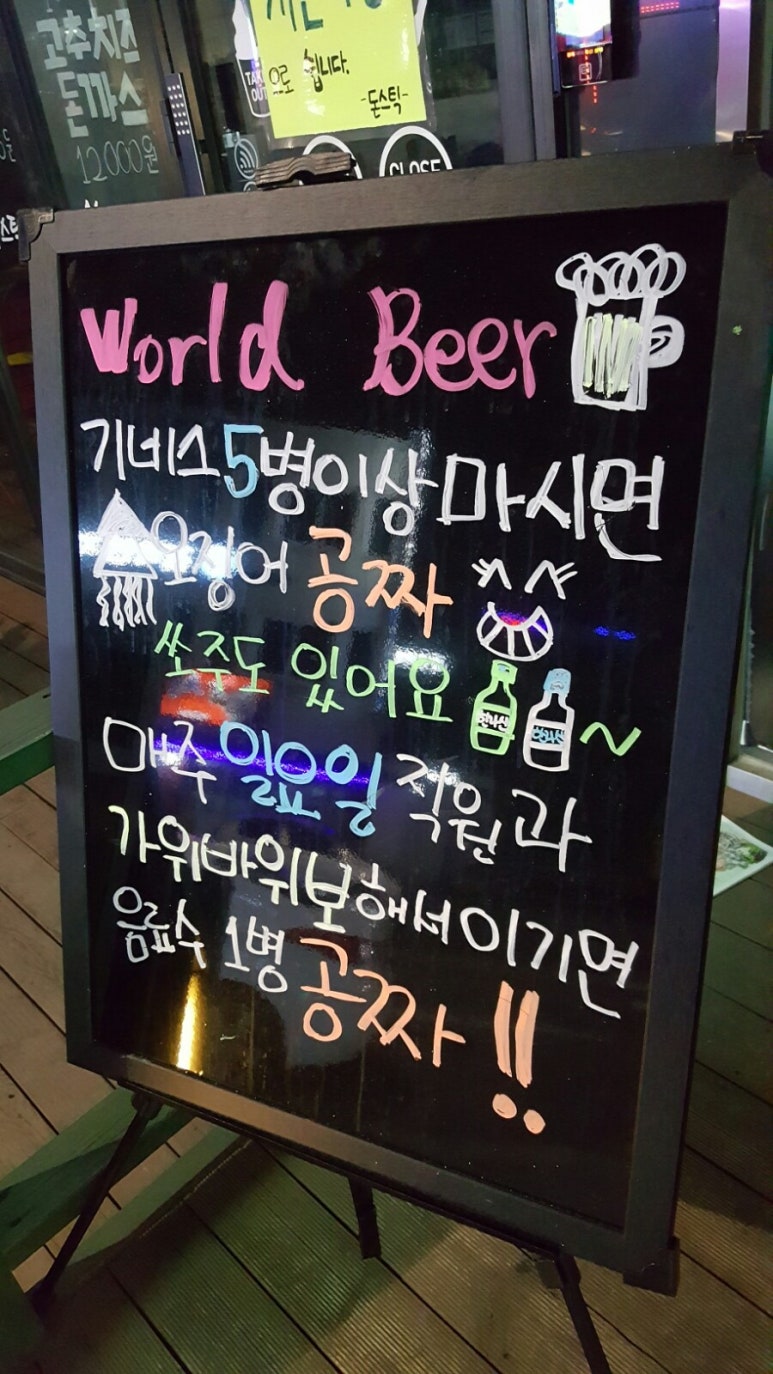 고추치즈
돈까스
12000원
으로 쉽니다.
-돈스틱-
TAKE
OUT
CLOSE
World Beer
기네스 5병이상 마시면
오징어 공짜
쏘주도 있어요 한라산 한라산 ~
매주 일요일 직원과
가위바위보해서 이기면
음료수 1병 공짜!!